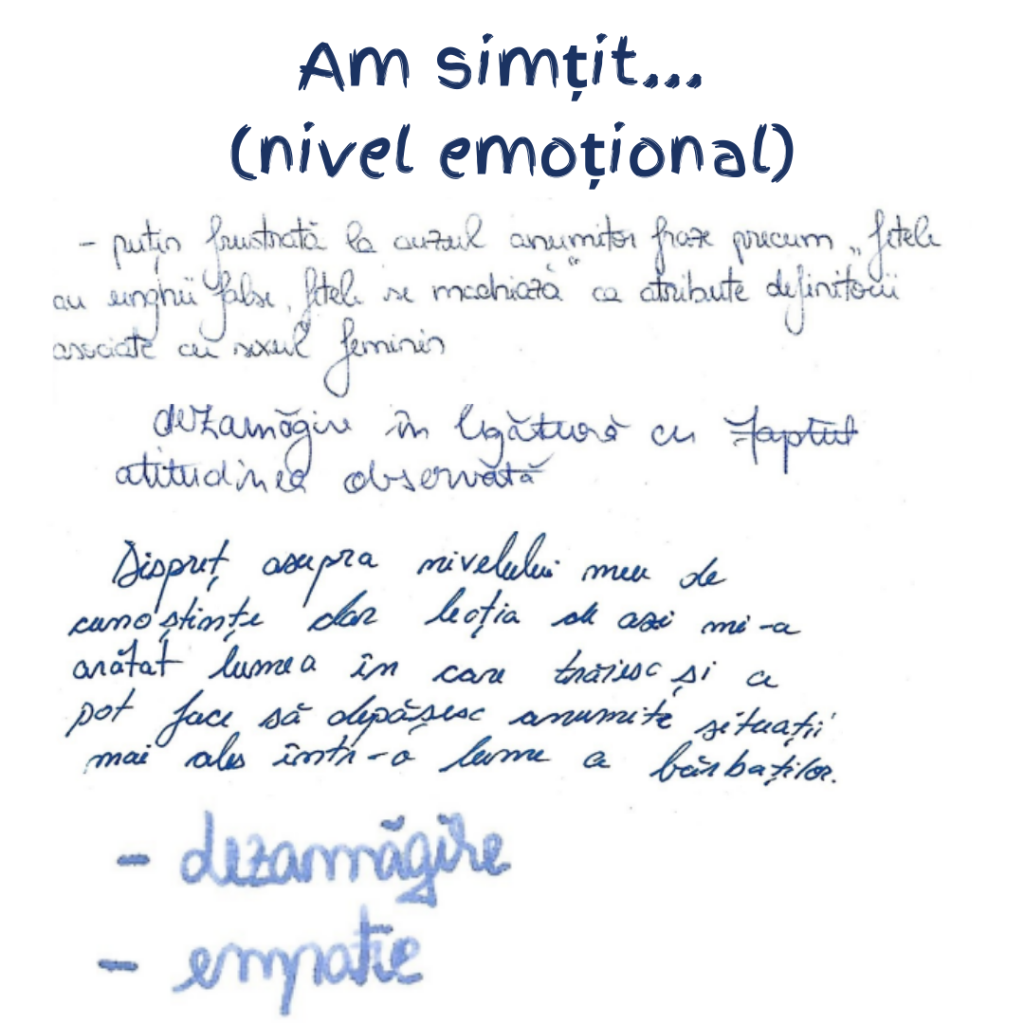 Am simțit...
(nivel emoțional)
- puțin frustrată la auzul anumitor fraze precum „fetele
au unghii false, fetele se machiază" ca atribute definitorii
asociate cu sexul feminin
dezamăgire în legătură cu faptul
atitudinea observată
Dispreț asupra nivelului meu de
cunoștințe dar lecția de azi mi-a
arătat lumea în care trăiesc și ce
pot face să depășesc anumite situații
mai ales într-o lume a bărbaților.
- dezamăgire
- empatie